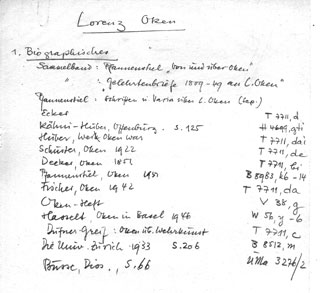 Lorenz Oken
1. Biographisches
Sammelband: Pfannenstiel "Von und über Oken"
" : Gelehrtenbriefe 1809-49 an L. Oken"
Pfannenstiel: Schriften u Varia über L. Oken (Slg.)
Ecker T 7711, d
Huber, Werk Oken war T 7711, dai
Schuster, Oken 1922 T 7711, de
Decker, Oken 1851 T 7711, bi
Pfannenstiel, Oken 1951 B 8983, k6-14
Fischer, Oken 1942 T 7711, da
Oken-Heft V 38, g
Hasselt, Oken in Basel 1946 W 56, y-6
Greif: Oken üb. Wehrkunst T 7711, c
Die Univ. Zürich 1933 S. 206 B 8512, m
Busse, Diss., S. 66 UMa 3276/2